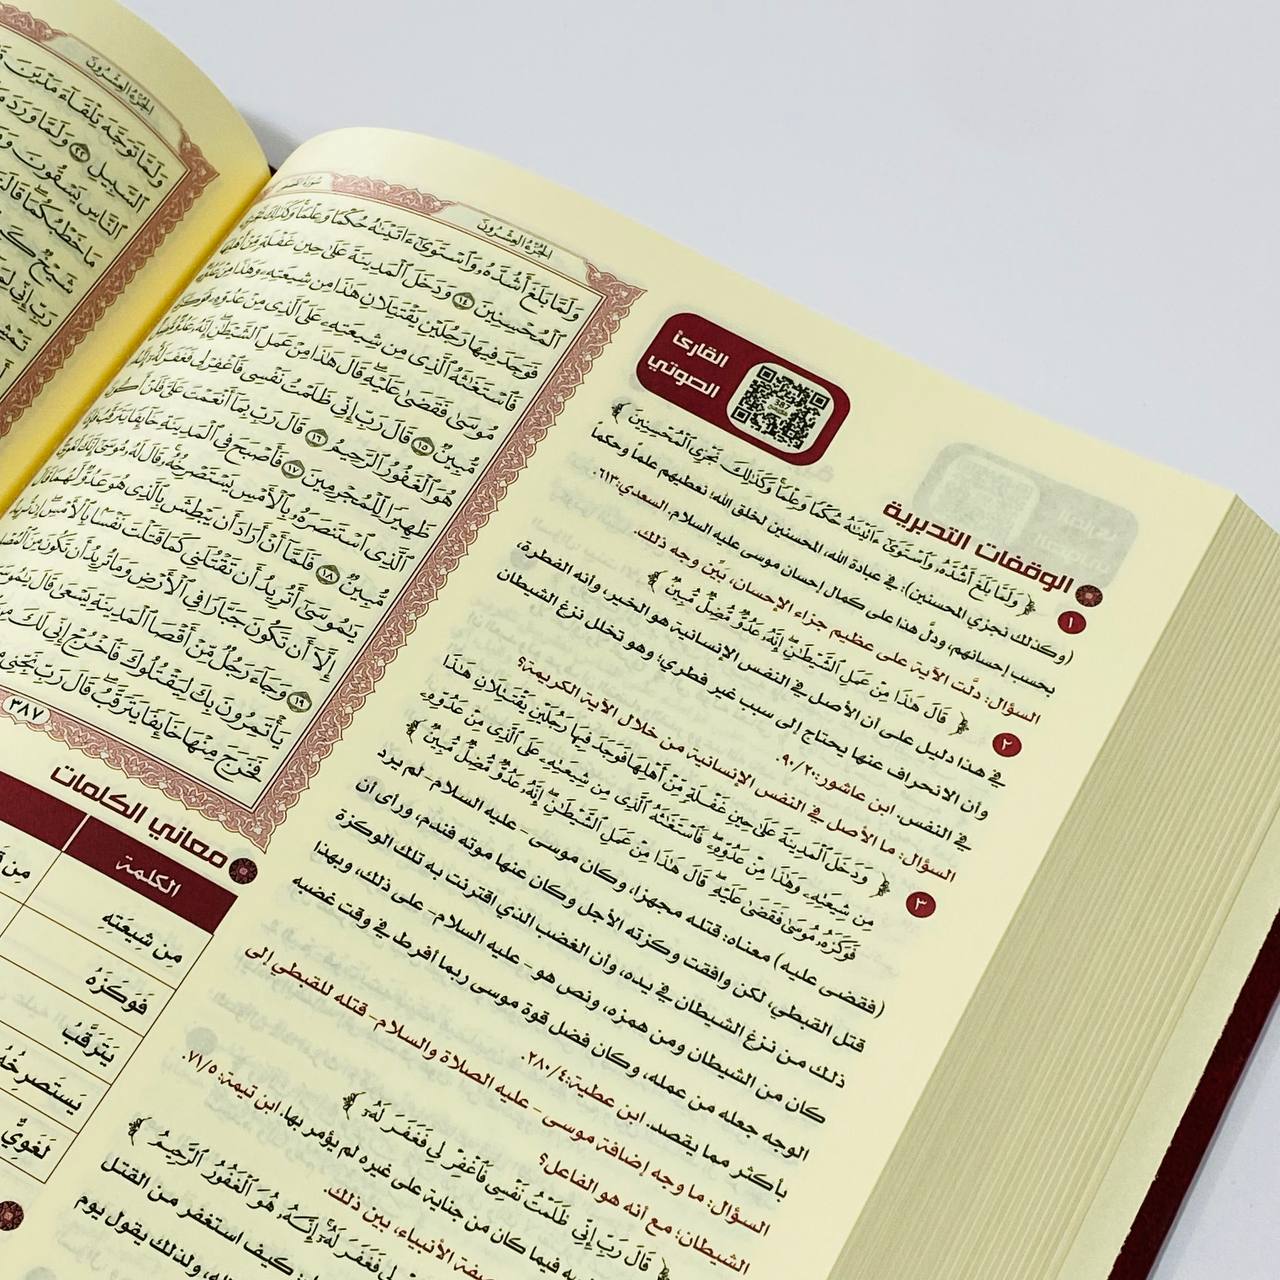 الجزء العشرون
ولما توجه تلقاء مدين
السبيل ٢٢ ولما ورد
الناس يسقون
ما خطبكما قالتا
شيخ
رب إني
الجزء العشرون
سورة القصص
وَلَمَّا بَلَغَ أَشُدَّهُۥ وَٱسْتَوَىٰٓ ءَاتَيْنَٰهُ حُكْمًا وَعِلْمًا وَكَذَٰلِكَ نَجْزِي
ٱلْمُحْسِنِينَ ١٤ وَدَخَلَ ٱلْمَدِينَةَ عَلَىٰ حِينِ غَفْلَةٍ مِّنْ أَهْلِهَا
فَوَجَدَ فِيهَا رَجُلَيْنِ يَقْتَتِلَانِ هَٰذَا مِن شِيعَتِهِۦ وَهَٰذَا مِنْ عَدُوِّهِۦ
فَٱسْتَغَٰثَهُ ٱلَّذِي مِن شِيعَتِهِۦ عَلَى ٱلَّذِي مِنْ عَدُوِّهِۦ فَوَكَزَهُۥ
مُوسَىٰ فَقَضَىٰ عَلَيْهِ قَالَ هَٰذَا مِنْ عَمَلِ ٱلشَّيْطَٰنِ إِنَّهُۥ عَدُوٌّ مُّضِلٌّ
مُّبِينٌ ١٥ قَالَ رَبِّ إِنِّي ظَلَمْتُ نَفْسِي فَٱغْفِرْ لِي فَغَفَرَ لَهُۥٓ إِنَّهُۥ
هُوَ ٱلْغَفُورُ ٱلرَّحِيمُ ١٦ قَالَ رَبِّ بِمَآ أَنْعَمْتَ عَلَيَّ فَلَنْ أَكُونَ
ظَهِيرًا لِّلْمُجْرِمِينَ ١٧ فَأَصْبَحَ فِي ٱلْمَدِينَةِ خَآئِفًا يَتَرَقَّبُ فَإِذَا
ٱلَّذِي ٱسْتَنصَرَهُۥ بِٱلْأَمْسِ يَسْتَصْرِخُهُۥ قَالَ لَهُۥ مُوسَىٰٓ إِنَّكَ لَغَوِيٌّ
مُّبِينٌ ١٨ فَلَمَّآ أَنْ أَرَادَ أَن يَبْطِشَ بِٱلَّذِي هُوَ عَدُوٌّ لَّهُمَا قَالَ
يَٰمُوسَىٰٓ أَتُرِيدُ أَن تَقْتُلَنِي كَمَا قَتَلْتَ نَفْسًۢا بِٱلْأَمْسِ إِن تُرِيدُ
إِلَّآ أَن تَكُونَ جَبَّارًا فِي ٱلْأَرْضِ وَمَا تُرِيدُ أَن تَكُونَ مِنَ ٱلْمُصْلِحِينَ
١٩ وَجَآءَ رَجُلٌ مِّنْ أَقْصَا ٱلْمَدِينَةِ يَسْعَىٰ قَالَ يَٰمُوسَىٰٓ
يَأْتَمِرُونَ بِكَ لِيَقْتُلُوكَ فَٱخْرُجْ إِنِّي لَكَ مِنَ
فَخَرَجَ مِنْهَا خَآئِفًا يَتَرَقَّبُ قَالَ رَبِّ نَجِّنِي
٣٨٧
القارئ
الصوتي
الوقفات التدبرية
١ ﴿ وَلَمَّا بَلَغَ أَشُدَّهُۥ وَٱسْتَوَىٰٓ ءَاتَيْنَٰهُ حُكْمًا وَعِلْمًا وَكَذَٰلِكَ نَجْزِي ٱلْمُحْسِنِينَ ﴾
(وكذلك نجزي المحسنين): في عبادة الله، المحسنين لخلق الله؛ نعطيهم علماً وحكماً
بحسب إحسانهم، ودلَّ هذا على كمال إحسان موسى عليه السلام. السعدي:٦١٣.
السؤال: دلَّت الآية على عظيم جزاء الإحسان، بيِّن وجه ذلك.
٢ ﴿ قَالَ هَٰذَا مِنْ عَمَلِ ٱلشَّيْطَٰنِ إِنَّهُۥ عَدُوٌّ مُّضِلٌّ مُّبِينٌ ﴾
في هذا دليل على أن الأصل في النفس الإنسانية هو الخير، وأنه الفطرة،
وأن الانحراف عنها يحتاج إلى سبب غير فطري؛ وهو تخلل نزغ الشيطان
في النفس. ابن عاشور:٩٠/٢٠.
السؤال: ما الأصل في النفس الإنسانية من خلال الآية الكريمة؟
٣ ﴿ وَدَخَلَ ٱلْمَدِينَةَ عَلَىٰ حِينِ غَفْلَةٍ مِّنْ أَهْلِهَا فَوَجَدَ فِيهَا رَجُلَيْنِ يَقْتَتِلَانِ هَٰذَا
مِن شِيعَتِهِۦ وَهَٰذَا مِنْ عَدُوِّهِۦ فَٱسْتَغَٰثَهُ ٱلَّذِي مِن شِيعَتِهِۦ عَلَى ٱلَّذِي مِنْ عَدُوِّهِۦ
فَوَكَزَهُۥ مُوسَىٰ فَقَضَىٰ عَلَيْهِ قَالَ هَٰذَا مِنْ عَمَلِ ٱلشَّيْطَٰنِ إِنَّهُۥ عَدُوٌّ مُّضِلٌّ مُّبِينٌ ﴾
(فقضى عليه) معناه: قتله مجهزا، وكان موسى - عليه السلام - لم يرد
قتل القبطي، لكن وافقت وكزته الأجل وكان عنها موته فندم، ورأى أن
ذلك من نزغ الشيطان في يده، وأن الغضب الذي اقترنت به تلك الوكزة
كان من الشيطان ومن همزه، ونص هو - عليه السلام - على ذلك، وبهذا
الوجه جعله من عمله، وكان فضل قوة موسى ربما أفرط في وقت غضبه
بأكثر مما يقصد. ابن عطية:٢٨٠/٤.
السؤال: ما وجه إضافة موسى - عليه الصلاة والسلام - قتله للقبطي إلى
الشيطان؛ مع أنه هو الفاعل؟
﴿ قَالَ رَبِّ إِنِّي ظَلَمْتُ نَفْسِي فَٱغْفِرْ لِي فَغَفَرَ لَهُۥٓ ﴾
فيما كان من جناية على غيره لم يؤمر بها. ابن تيمية:٧١/٥.
الأنبياء، بين ذلك.
لِي فَغَفَرَ لَهُۥٓ إِنَّهُۥ هُوَ ٱلْغَفُورُ ٱلرَّحِيمُ ﴾
كيف استغفر من القتل
ولذلك يقول يوم
معاني الكلمات
الكلمة
مِن شِيعَتِهِ
فَوَكَزَهُ
يَتَرَقَّبُ
يَستَصرِخُهُ
لَغَوِيٌّ